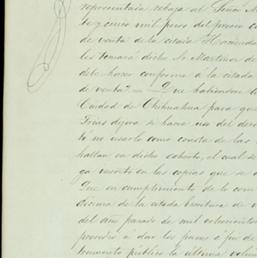 representaria rebaja del Señor M
te y cinco mil pesos del precio c
de venta de la citada Hacienda
les tomará dicho Sr Martinez d
debe hacer conforme a la citada
de venta? — Que habiendose
Ciudad de Chihuahua para que
Frias dijera se hace uso del dere
tó no usarlo como consta de las
hallan en dicho cohorto, el cual se
ga inserto en las copias que se d
Que en cumplimiento de la com
de la citada Escritura de v
del año pasado de mil ochocientos
procedió á dar los pasos á fin de
instrumento público la ultima volun